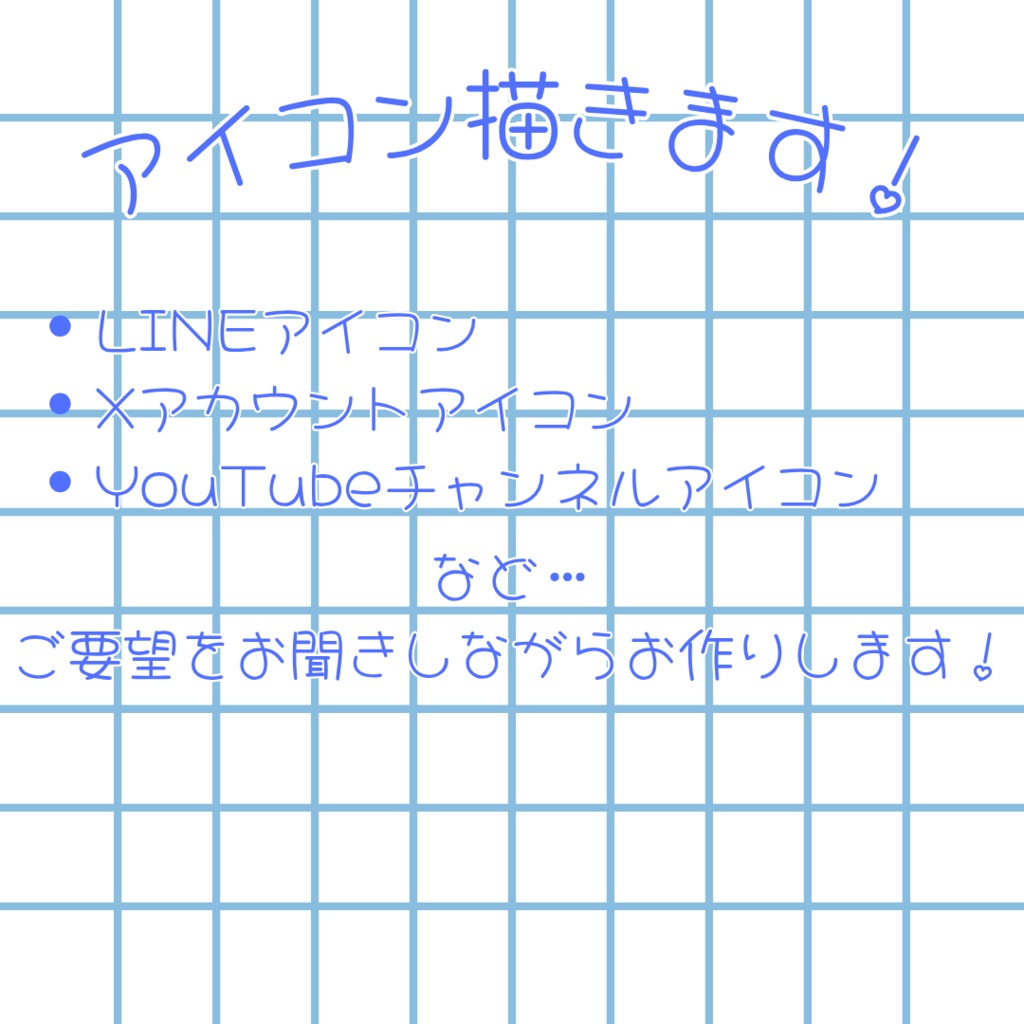 アイコン描きます!
• LINEアイコン
• Xアカウントアイコン
• YouTubeチャンネルアイコン
など…
ご要望をお聞きしながらお作りします!